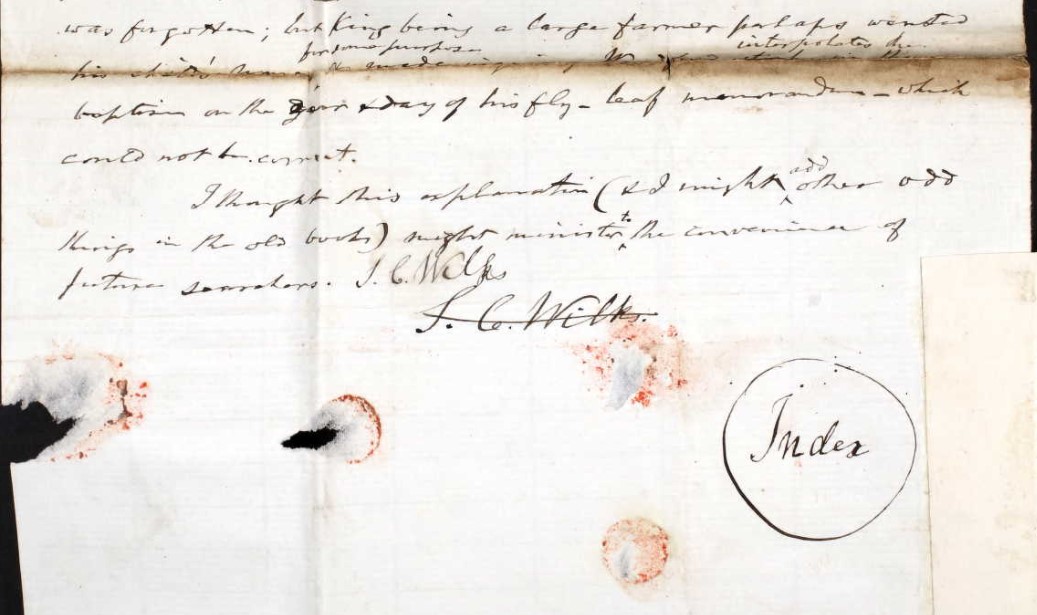 was forgotten; but King being a large farmer perhaps wanted
for some purpose interpolates the
his child's & made
baptism on the year & day of his fly-leaf memoranda - which
could not be correct.
I thought this explanation (& I might add other odd
things in the old books) might minister to the convenience of
future searchers. S. C. Wilks
S. C. Wilks.
Index